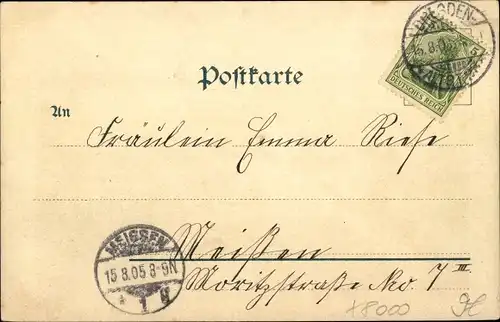 DRESDEN-
15.8.05
ALTST.
DEUTSCHES REICH
5
Postkarte
An
Fräulein Emma Riese
Meißen
Moritzstraße No. 7 III
MEISSEN
15.8.05 8-9N
* 1 g
+8000